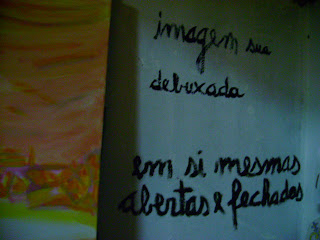 imagem sua
debuxada
em si mesmas
abertas e fechadas